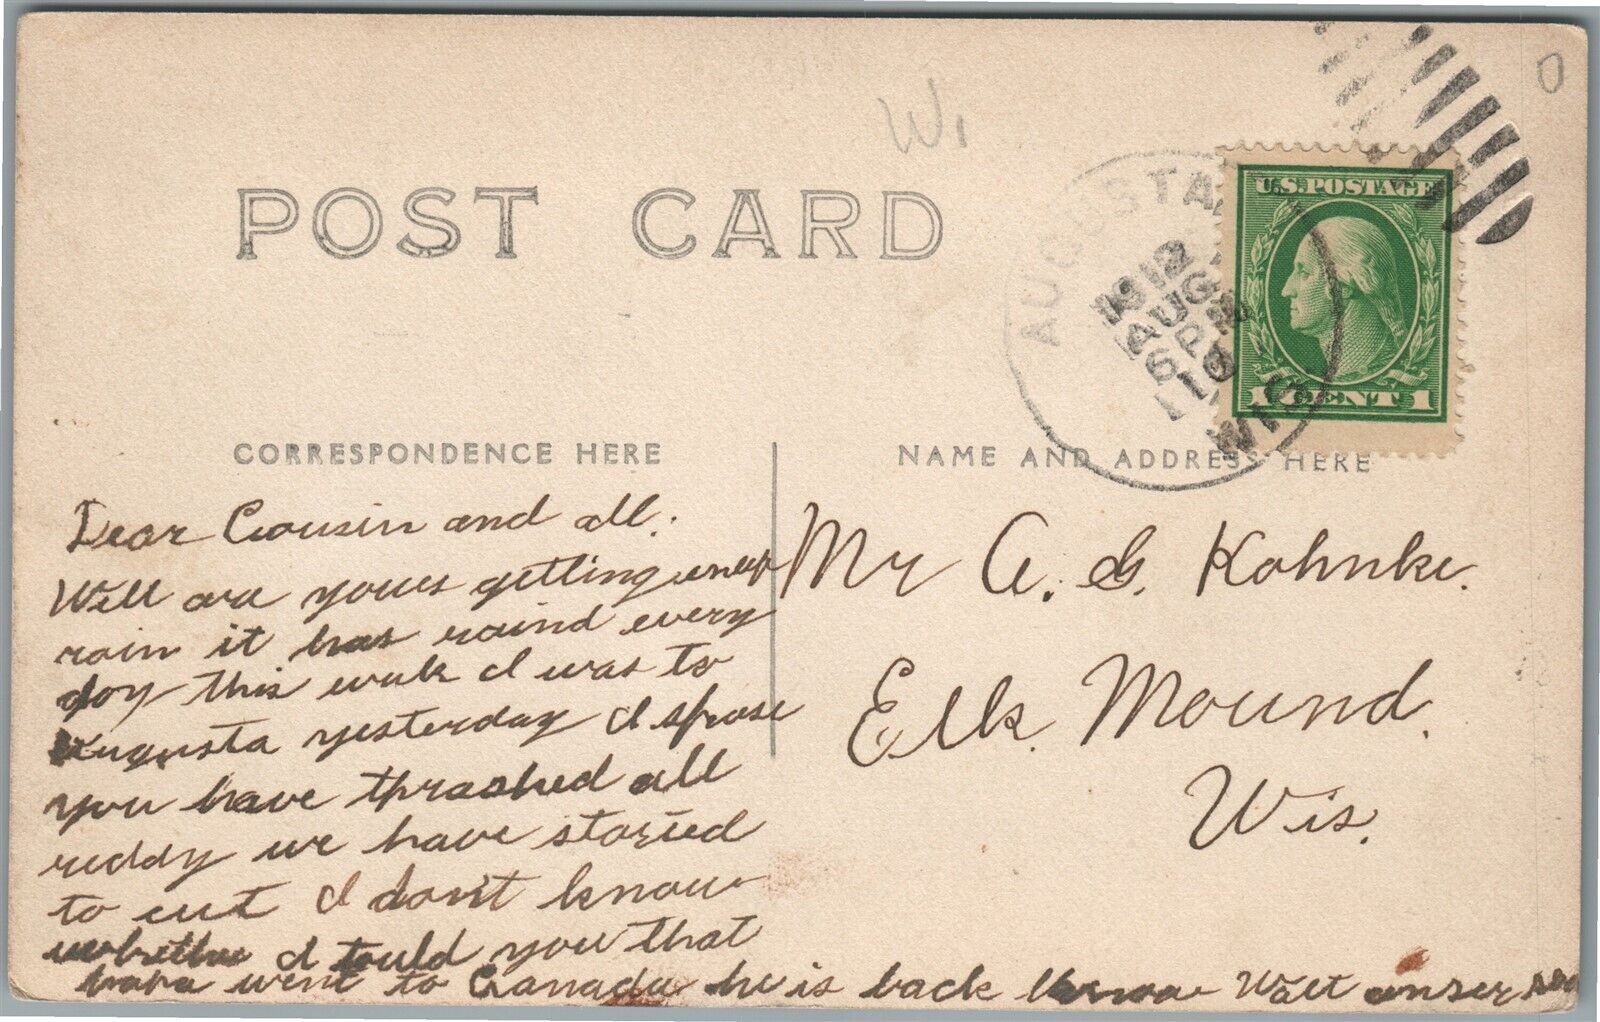 W.
O
POST CARD
AUGUSTA
WIS
1912
AUG
6 PM
U.S. POSTAGE
1 CENT 1
CORRESPONDENCE HERE
NAME AND ADDRESS HERE
Dear Cousin and all.
Well are youes getting enup
rain it has raind every
day this weak I was to
Augusta yesterday I spose
you have thrashed all
reddy we have started
to cut I dont know
whether I tould you that
went to Canada he is back now Walt anser soon
Mr A. G. Kohnke.
Elk Mound.
Wis.